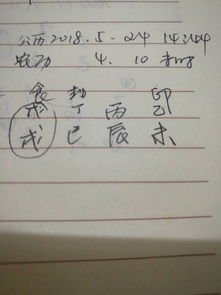 公历2018.5.24 14:44
农历 4.10 未时
食 劫 印
戊 丁 丙 乙
戌 巳 辰 未